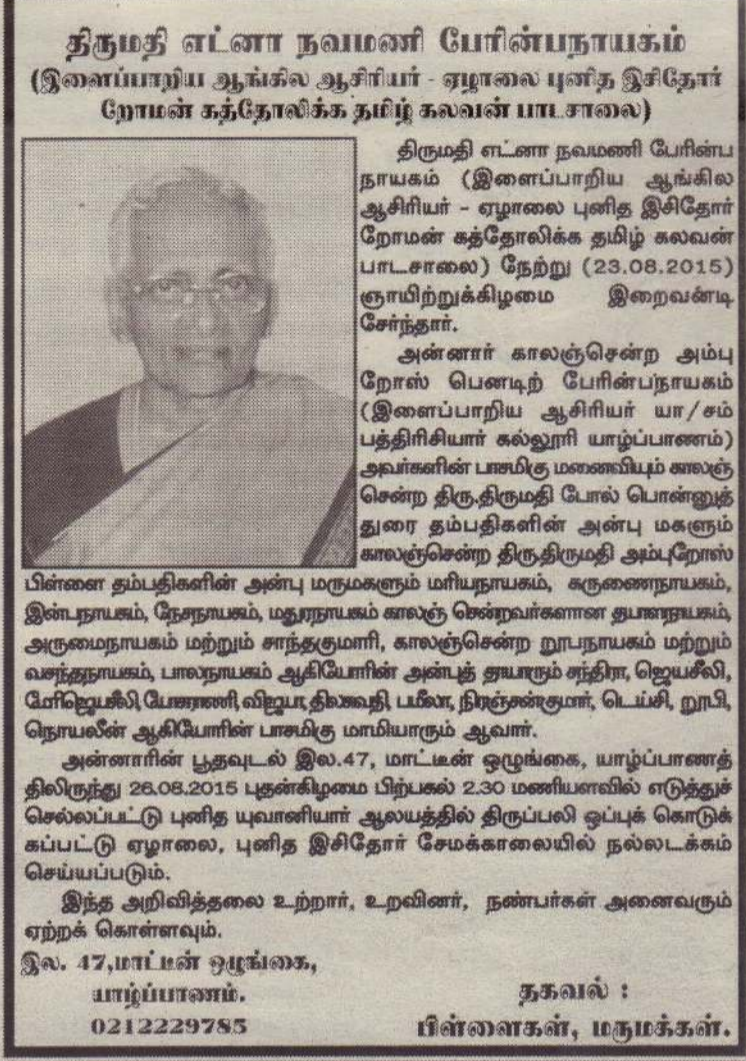 திருமதி எட்னா நவமணி பேரின்பநாயகம்
(இளைப்பாறிய ஆங்கில ஆசிரியர் - ஏழாலை புனித இசிதோர்
றோமன் கத்தோலிக்க தமிழ் கலவன் பாடசாலை)
திருமதி எட்னா நவமணி பேரின்ப
நாயகம் (இளைப்பாறிய ஆங்கில
ஆசிரியர் - ஏழாலை புனித இசிதோர்
றோமன் கத்தோலிக்க தமிழ் கலவன்
பாடசாலை) நேற்று (23.08.2015)
ஞாயிற்றுக்கிழமை இறைவன்டி
சேர்ந்தார்.
அன்னார் காலஞ்சென்ற அம்பு
றோஸ் பெனடிற் பேரின்பநாயகம்
(இளைப்பாறிய ஆசிரியர் யா/சம்
பத்திரிசியார் கல்லூரி யாழ்ப்பாணம்)
அவர்களின் பாசமிகு மனைவியும் காலஞ்
சென்ற திரு.திருமதி போல் பொன்னுத்
துரை தம்பதிகளின் அன்பு மகளும்
காலஞ்சென்ற திரு.திருமதி அம்புறோஸ்
பிள்ளை தம்பதிகளின் அன்பு மருமகளும் மரியநாயகம், கருணைநாயகம்,
இன்பநாயகம், நேசநாயகம், மதுரநாயகம் காலஞ் சென்றவர்களான தயாளநாயகம்,
அருமைநாயகம் மற்றும் சாந்தகுமாரி, காலஞ்சென்ற றூபநாயகம் மற்றும்
வசந்தநாயகம், பாலநாயகம் ஆகியோரின் அன்புத் தாயாரும் சந்திரா, ஜெயசீலி,
மேரிஜெசீலி, யோகராணி, விஜயா, திலகவதி, பமீலா, நிரஞ்சன்குமார், டெய்சி, றூபி,
நொயலீன் ஆகியோரின் பாசமிகு மாமியாரும் ஆவார்.
அன்னாரின் பூதவுடல் இல.47, மாட்டீன் ஒழுங்கை, யாழ்ப்பாணத்
திலிருந்து 26.08.2015 புதன்கிழமை பிற்பகல் 2.30 மணியளவில் எடுத்துச்
செல்லப்பட்டு புனித யுவானியார் ஆலயத்தில் திருப்பலி ஒப்புக் கொடுக்
கப்பட்டு ஏழாலை, புனித இசிதோர் சேமக்காலையில் நல்லடக்கம்
செய்யப்படும்.
இந்த அறிவித்தலை உற்றார், உறவினர், நண்பர்கள் அனைவரும்
ஏற்றக் கொள்ளவும்.
இல. 47,மாட்டீன் ஒழுங்கை,
யாழ்ப்பாணம்.
0212229785
தகவல் :
பிள்ளைகள், மருமக்கள்.